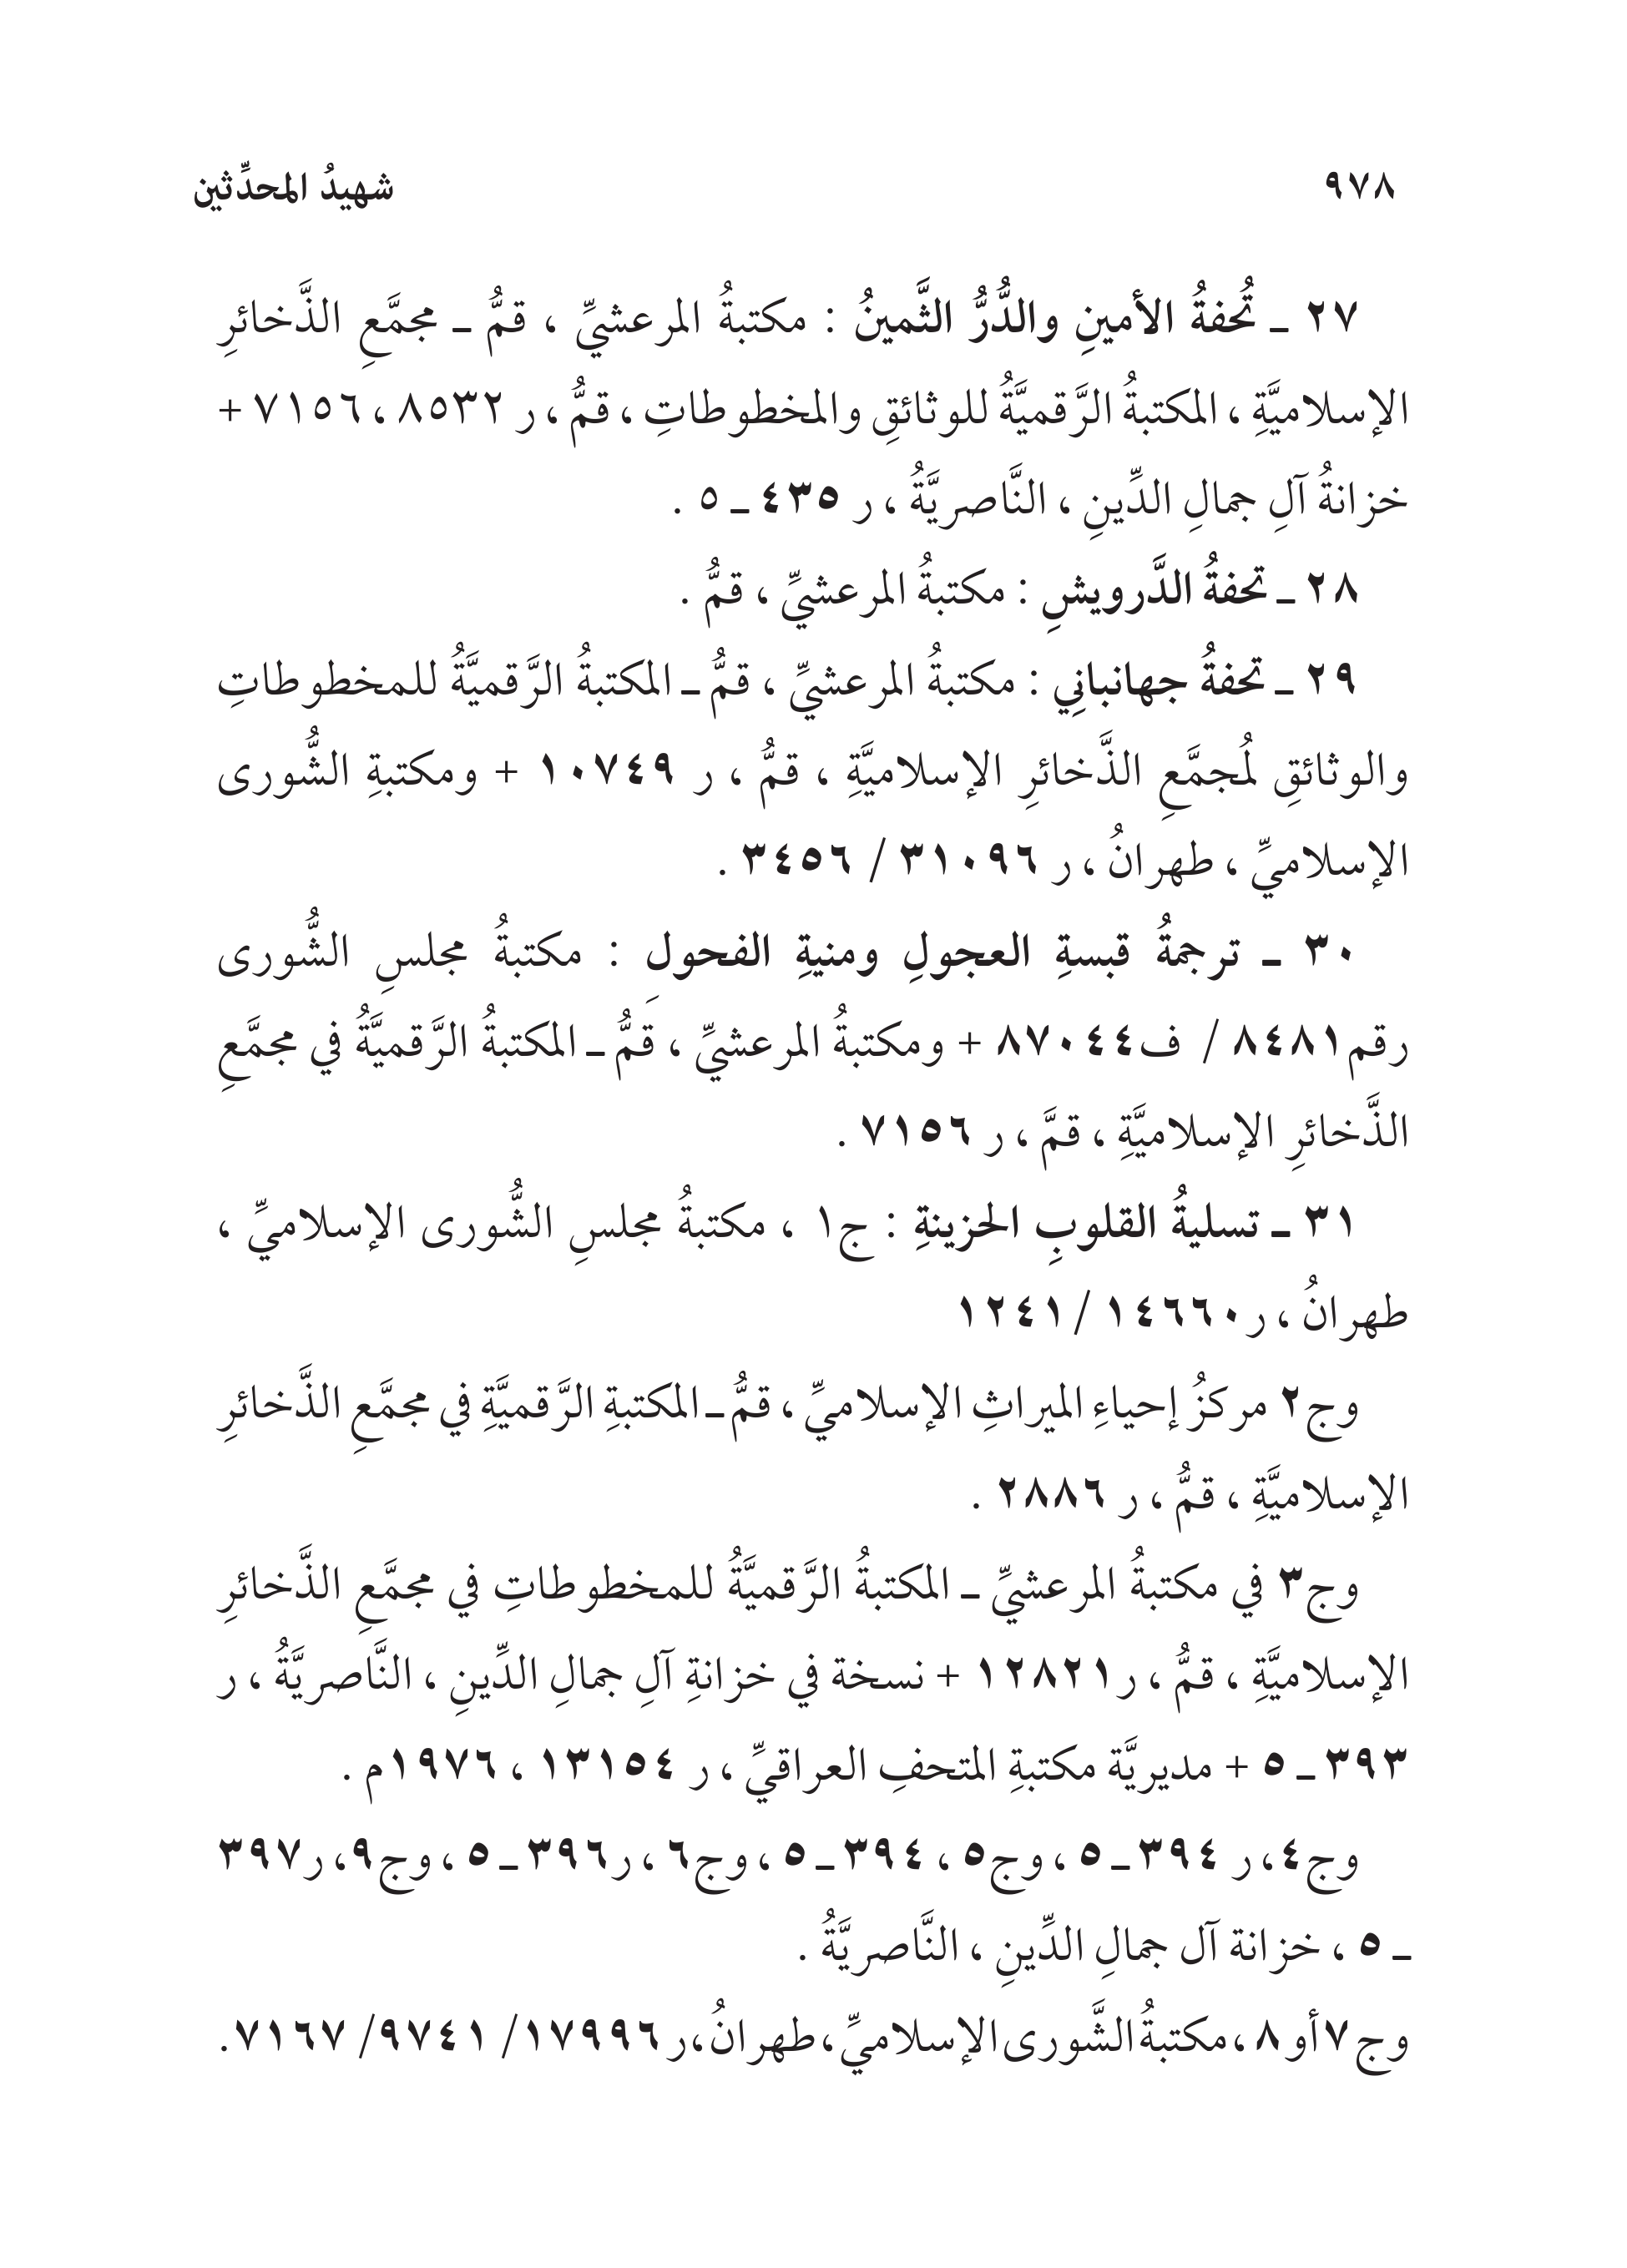 ٩٧٨ شهيدُ المحدِّثين
٢٧ ـ تُحفةُ الأمينِ والدُّرُّ الثَّمينُ : مكتبةُ المرعشيِّ ، قمُّ ـ مجمَّعِ الذَّخائرِ
الإسلاميَّةِ ، المكتبةُ الرَّقميَّةُ للوثائقِ والمخطوطاتِ ، قمُّ ، ر ٨٥٣٢ ، ٧١٥٦ +
خزانةُ آلِ جمالِ الدِّينِ ، النَّاصريَّةُ ، ر ٤٣٥ ـ ٥ .
٢٨ ـ تحفةُ الدَّرويشِ : مكتبةُ المرعشيِّ ، قمُّ .
٢٩ ـ تحفةُ جهانبانِي : مكتبةُ المرعشيِّ ، قمُّ ـ المكتبةُ الرَّقميَّةُ للمخطوطاتِ
والوثائقِ لمُجمَّعِ الذَّخائرِ الإسلاميَّةِ ، قمُّ ، ر ١٠٧٤٩ + ومكتبةِ الشُّورى
الإسلاميِّ ، طهرانُ ، ر ٣١٠٩٦ / ٣٤٥٦ .
٣٠ ـ ترجمةُ قبسةِ العجولِ ومنيةِ الفحولِ : مكتبةُ مجلسِ الشُّورى
رقم٨٤٨١ / ف٨٧٠٤٤ + ومكتبةُ المرعشيِّ ، قمُّ ـ المكتبةُ الرَّقميَّةُ في مجمَّعِ
الذَّخائرِ الإسلاميَّةِ ، قمَّ ، ر ٧١٥٦ .
٣١ ـ تسليةُ القلوبِ الحزينةِ : ج١ ، مكتبةُ مجلسِ الشُّورى الإسلاميِّ ،
طهرانُ ، ر١٤٦٦٠ / ١٢٤١
وج٢ مركزُ إحياءِ الميراثِ الإسلاميِّ ، قمُّ ـ المكتبةِ الرَّقميَّةِ في مجمَّعِ الذَّخائرِ
الإسلاميَّةِ ، قمُّ ، ر ٢٨٨٦ .
وج٣ في مكتبةُ المرعشيِّ ـ المكتبةُ الرَّقميَّةُ للمخطوطاتِ في مجمَّعِ الذَّخائرِ
الإسلاميَّةِ ، قمُّ ، ر١٢٨٢١ + نسخة في خزانةِ آلِ جمالِ الدِّينِ ، النَّاصريَّةُ ، ر
٣٩٣ ـ ٥ + مديريَّة مكتبةِ المتحفِ العراقيِّ ، ر ١٣١٥٤ ، ١٩٧٦م .
وج٤، ر ٣٩٤ ـ ٥ ، وج٥ ، ٣٩٤ ـ ٥ ، وج٦ ، ر٣٩٦ ـ ٥ ، وج٩، ر٣٩٧
ـ ٥ ، خزانة آل جمالِ الدِّينِ ، النَّاصريَّةُ .
وج٧ أو ٨ ، مكتبةُ الشَّورى الإسلاميِّ ، طهرانُ ، ر ١٧٩٩٦ / ٩٧٤١ / ٧١٦٧ .